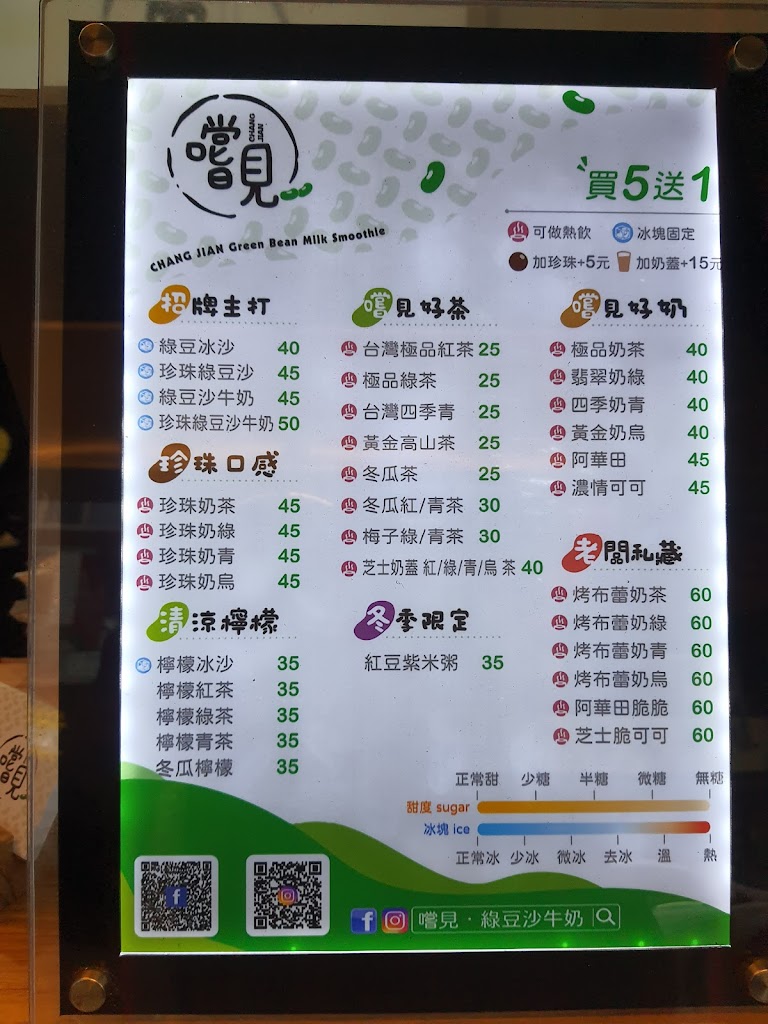 嚐見
CHANG JIAN
CHANG JIAN Green Bean Milk Smoothie
買5送1
可做熱飲 冰塊固定
加珍珠+5元 加奶蓋+15元
招牌主打
綠豆冰沙 40
珍珠綠豆沙 45
綠豆沙牛奶 45
珍珠綠豆沙牛奶 50
珍珠口感
珍珠奶茶 45
珍珠奶綠 45
珍珠奶青 45
珍珠奶烏 45
清涼檸檬
檸檬冰沙 35
檸檬紅茶 35
檸檬綠茶 35
檸檬青茶 35
冬瓜檸檬 35
嚐見好茶
台灣極品紅茶 25
極品綠茶 25
台灣四季青 25
黃金高山茶 25
冬瓜茶 25
冬瓜紅/青茶 30
梅子綠/青茶 30
芝士奶蓋 紅/綠/青/烏 茶 40
冬季限定
紅豆紫米粥 35
嚐見好奶
極品奶茶 40
翡翠奶綠 40
四季奶青 40
黃金奶烏 40
阿華田 45
濃情可可 45
老闆私藏
烤布蕾奶茶 60
烤布蕾奶綠 60
烤布蕾奶青 60
烤布蕾奶烏 60
阿華田脆脆 60
芝士脆可可 60
正常甜 少糖 半糖 微糖 無糖
甜度 sugar
冰塊 ice
正常冰 少冰 微冰 去冰 溫 熱
嚐見．綠豆沙牛奶
嚐見